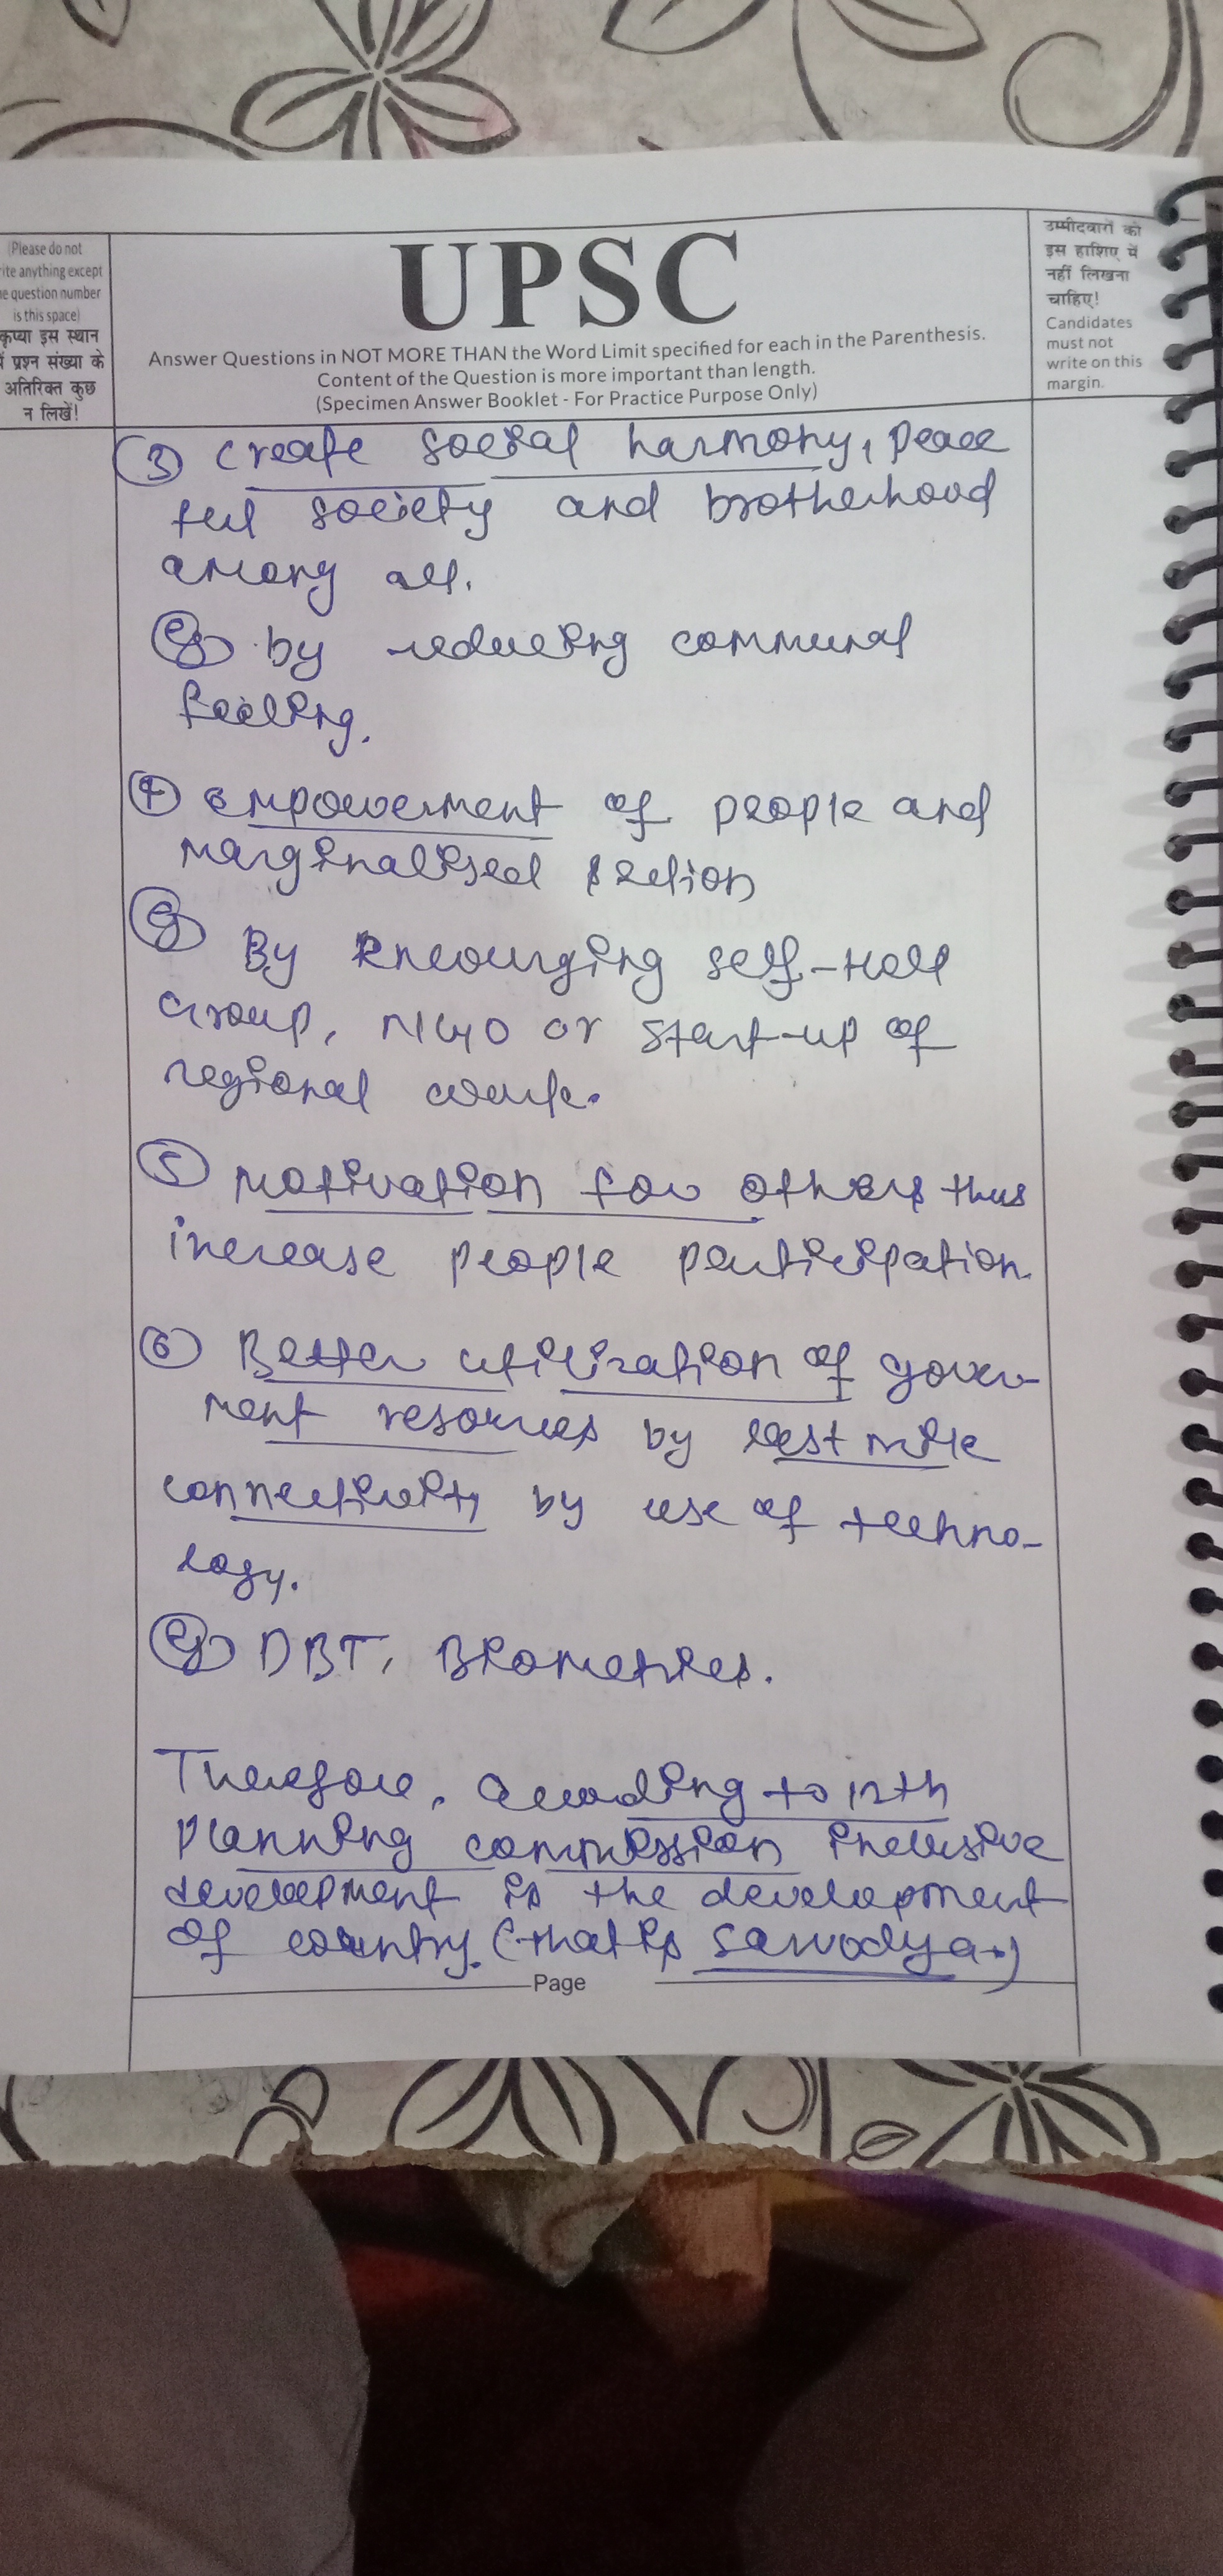 (Please do not
ite anything except
e question number
is this space)
कृप्या इस स्थान
में प्रश्न संख्या के
अतिरिक्त कुछ
न लिखें!
UPSC
Answer Questions in NOT MORE THAN the Word Limit specified for each in the Parenthesis.
Content of the Question is more important than length.
(Specimen Answer Booklet - For Practice Purpose Only)
उम्मीदवारों को
इस हाशिए में
नहीं लिखना
चाहिए!
Candidates
must not
write on this
margin.
(3) create social harmony, peace
ful society and brotherhood
among all.
eg by reducing communal
feeling.
(4) empowerment of people and
marginalised section
eg By encourging self-Help
Group, NGO or start-up of
regional work.
(5) motivation for others thus
increase people participation.
(6) Better utilization of govern-
ment resources by last mile
connectivity by use of techno-
logy.
eg DBT, Biometrics.
Therefore, according to 12th
planning commission inclusive
development is the development
of country. (that is sarvodya.)
Page